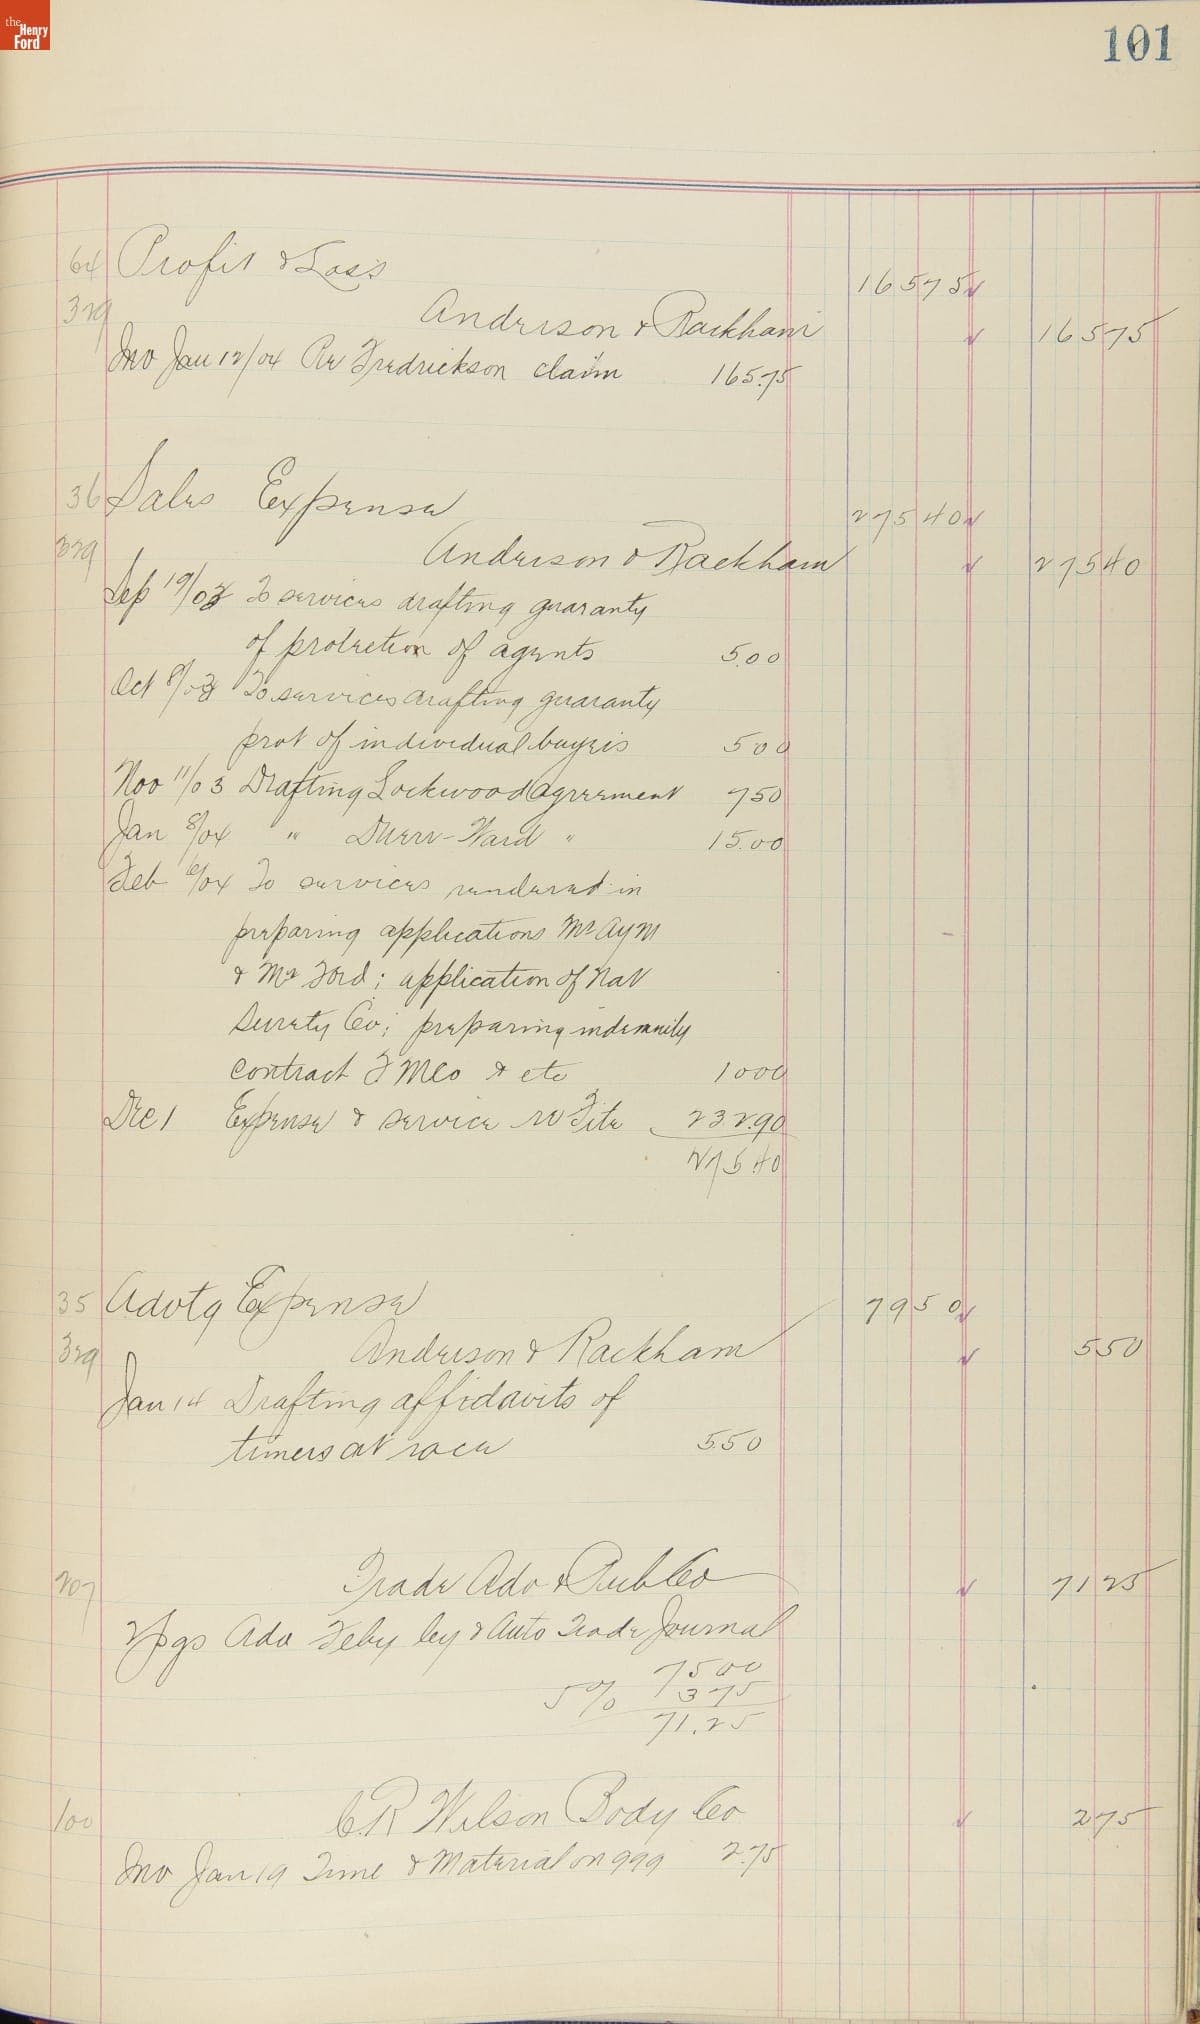 the Henry Ford
101
64 Profit & Loss 165 75
329 Anderson & Rackham 165 75
Inv Jan 12/04 Re Fredrickson claim 165.75
36 Sales Expense 275 40
329 Anderson & Rackham 275 40
Sep 19/03 To services drafting guaranty
of protection of agents 5.00
Oct 8/03 To services drafting guaranty
prot of individual buyers 5 00
Nov 11/03 Drafting Lockwood Agreement 7 50
Jan 8/04 " Duerr-Ward " 15.00
Feb 6/04 To services rendered in
preparing applications Mr
& Mr Ford; application of Nat
Surety Co; preparing indemnity
contract F M Co & etc 10 00
Dec 1 Expense & service 232.90
275 40
35 Advtg Expense 79 50
329 Anderson & Rackham 5 50
Jan 14 Drafting affidavits of
timers at race 5 50
207 Trade Adv & Pub Co 71 25
2 pgs Adv Feby Cy & Auto Trade Journal
75 00
5% 3 75
71.25
100 C R Wilson Body Co 2 75
Inv Jan 19 Time & Material on 999 2.75